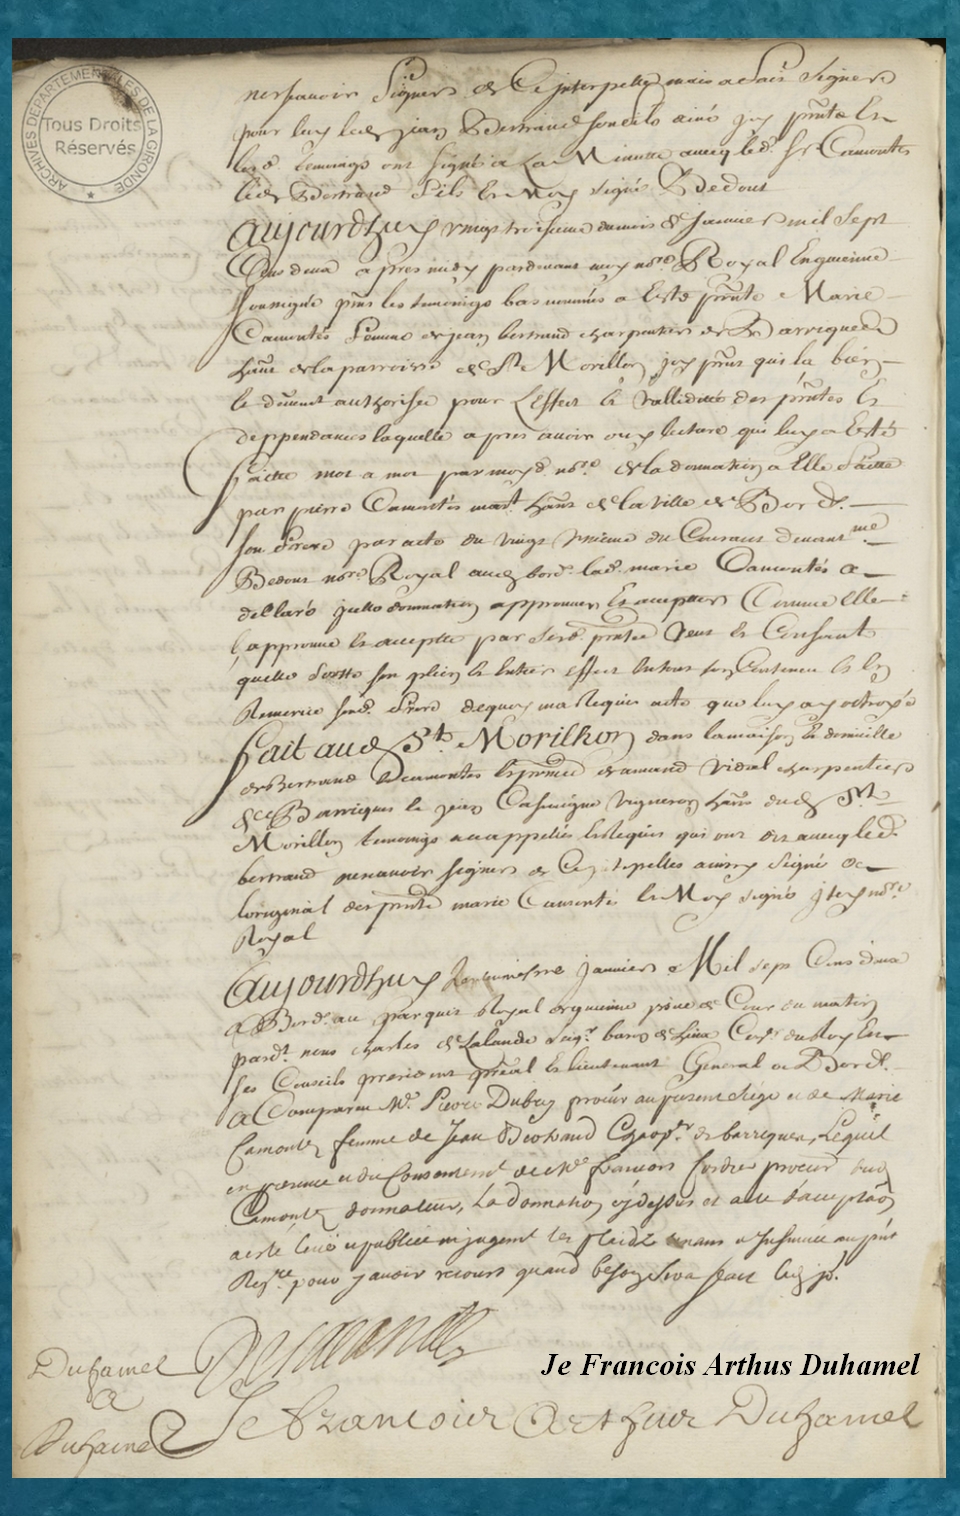 ARCHIVES DEPARTEMENTALES DE LA GIRONDE
Tous Droits
Réservés
ne scavoir signer de ce interpellé mais a Sais signer
pour luy led. jean Bertrand son fils ainé jcy pnts Et
lesd. temoings ont signé a La Minutte avecq led. Sr Camontes
led. Bertrand fils Et Moy signé Bedout
aujourdhuy vingt troisieme du mois de janvier mil sept
Cens deux apres midy pardevant moy nore. Royal En guienne
soussigné pnts les temoings bas nommés a Esté pnte Marie
Camontés femme de jean bertrand charpentier de Barriques
hant de la parroisse de St Morillon jcy pnt qui la bien
le dument authorisée pour L'effect Et vallidité des pntes Et
deppendances laquelle apres avoir ouy lecture qui luy a Esté
faitte mot a mot par moyd. nore. de la donnation a Elle faitte
par pierre Camontés mart. hant de la ville de Bord.
son frere par acte du vingt unieme du Courant devant me
Bedout nore. Royal aud. bord. lad. marie Camontés a
declaré jcelle donnation approuver Et accepter Comme Elle
l'approuve Et accepte par ses pntes Veut Et Consant
quelle sorte son plein Et Entier effect Entout son Contenu Et En
Remercie sond. frere dequoy ma Requis acte que luy ay octroyé
fait aud. St. Morilhon dans la maison Et domicille
de Bertrand Camontes En pnce damand Vidal charpentier
de Barriques Et jean vigneron hants dud. St.
Morillon temoings acappellés Et Requis qui ont dit avecq led.
bertrand ne scavoir signer de ce jnterpelles ainsy signé a
loriginal des pntes marie Camonté Et Moy signé nore.
Royal
aujourdhuy janvier Mil sept Cens deux
a Bordeau parquet Royal de guienne de Cour du matin
pardt nous charles de Lalande Seigr baron de Conr du Roy En
ses Conseils president pnal Et lieutenant General a Bord.
a Comparu Me. Pierre Dubuy procur au present siege et de Marie
Camontes femme de Jean Bertrand Charptr de barriques, Lequel
en presence et du Consentemt de Me francois procur dud.
Camontes donnateur, La donnation cy dessus et acte d'acceptaon
a esté leue et publiée en jugemt les plaidz tenans et Insinuée au pnt
Regre. pour y avoir recours quand besoin sera fait
Delalande
Duhamel
a
Duhamel
Je Francois Arthus Duhamel
Je francois Arthus Duhamel